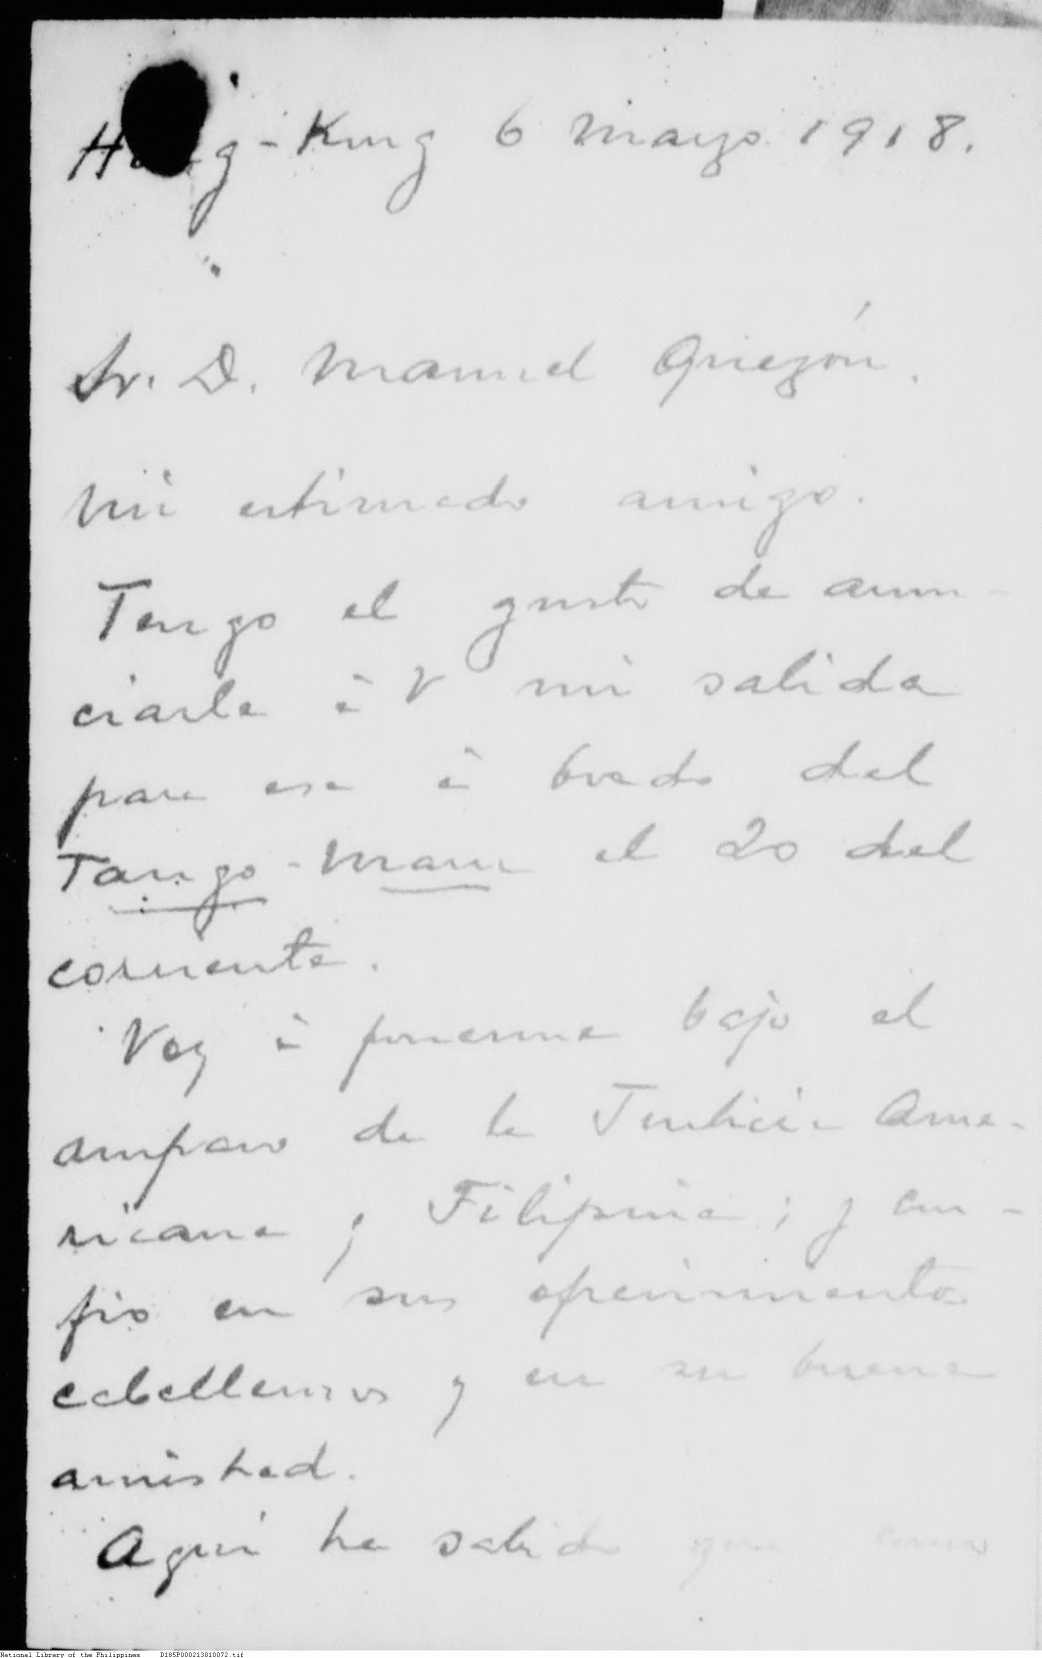 Hong-Kong 6 Mayo 1918.
Sr. D. Manuel Quezón.
Mi estimado amigo.
Tengo el gusto de anun-
ciarle á V mi salida
para esa á bordo del
Tango-Maru el 20 del
corriente.
Voy á ponerme bajo el
amparo de la Justicia Ame-
ricana y Filipina; y con-
fio en sus ofrecimientos
caballerosos y en su buena
amistad.
Aqui he sabido que
National Library of the Philippines D185P000213810072.tif